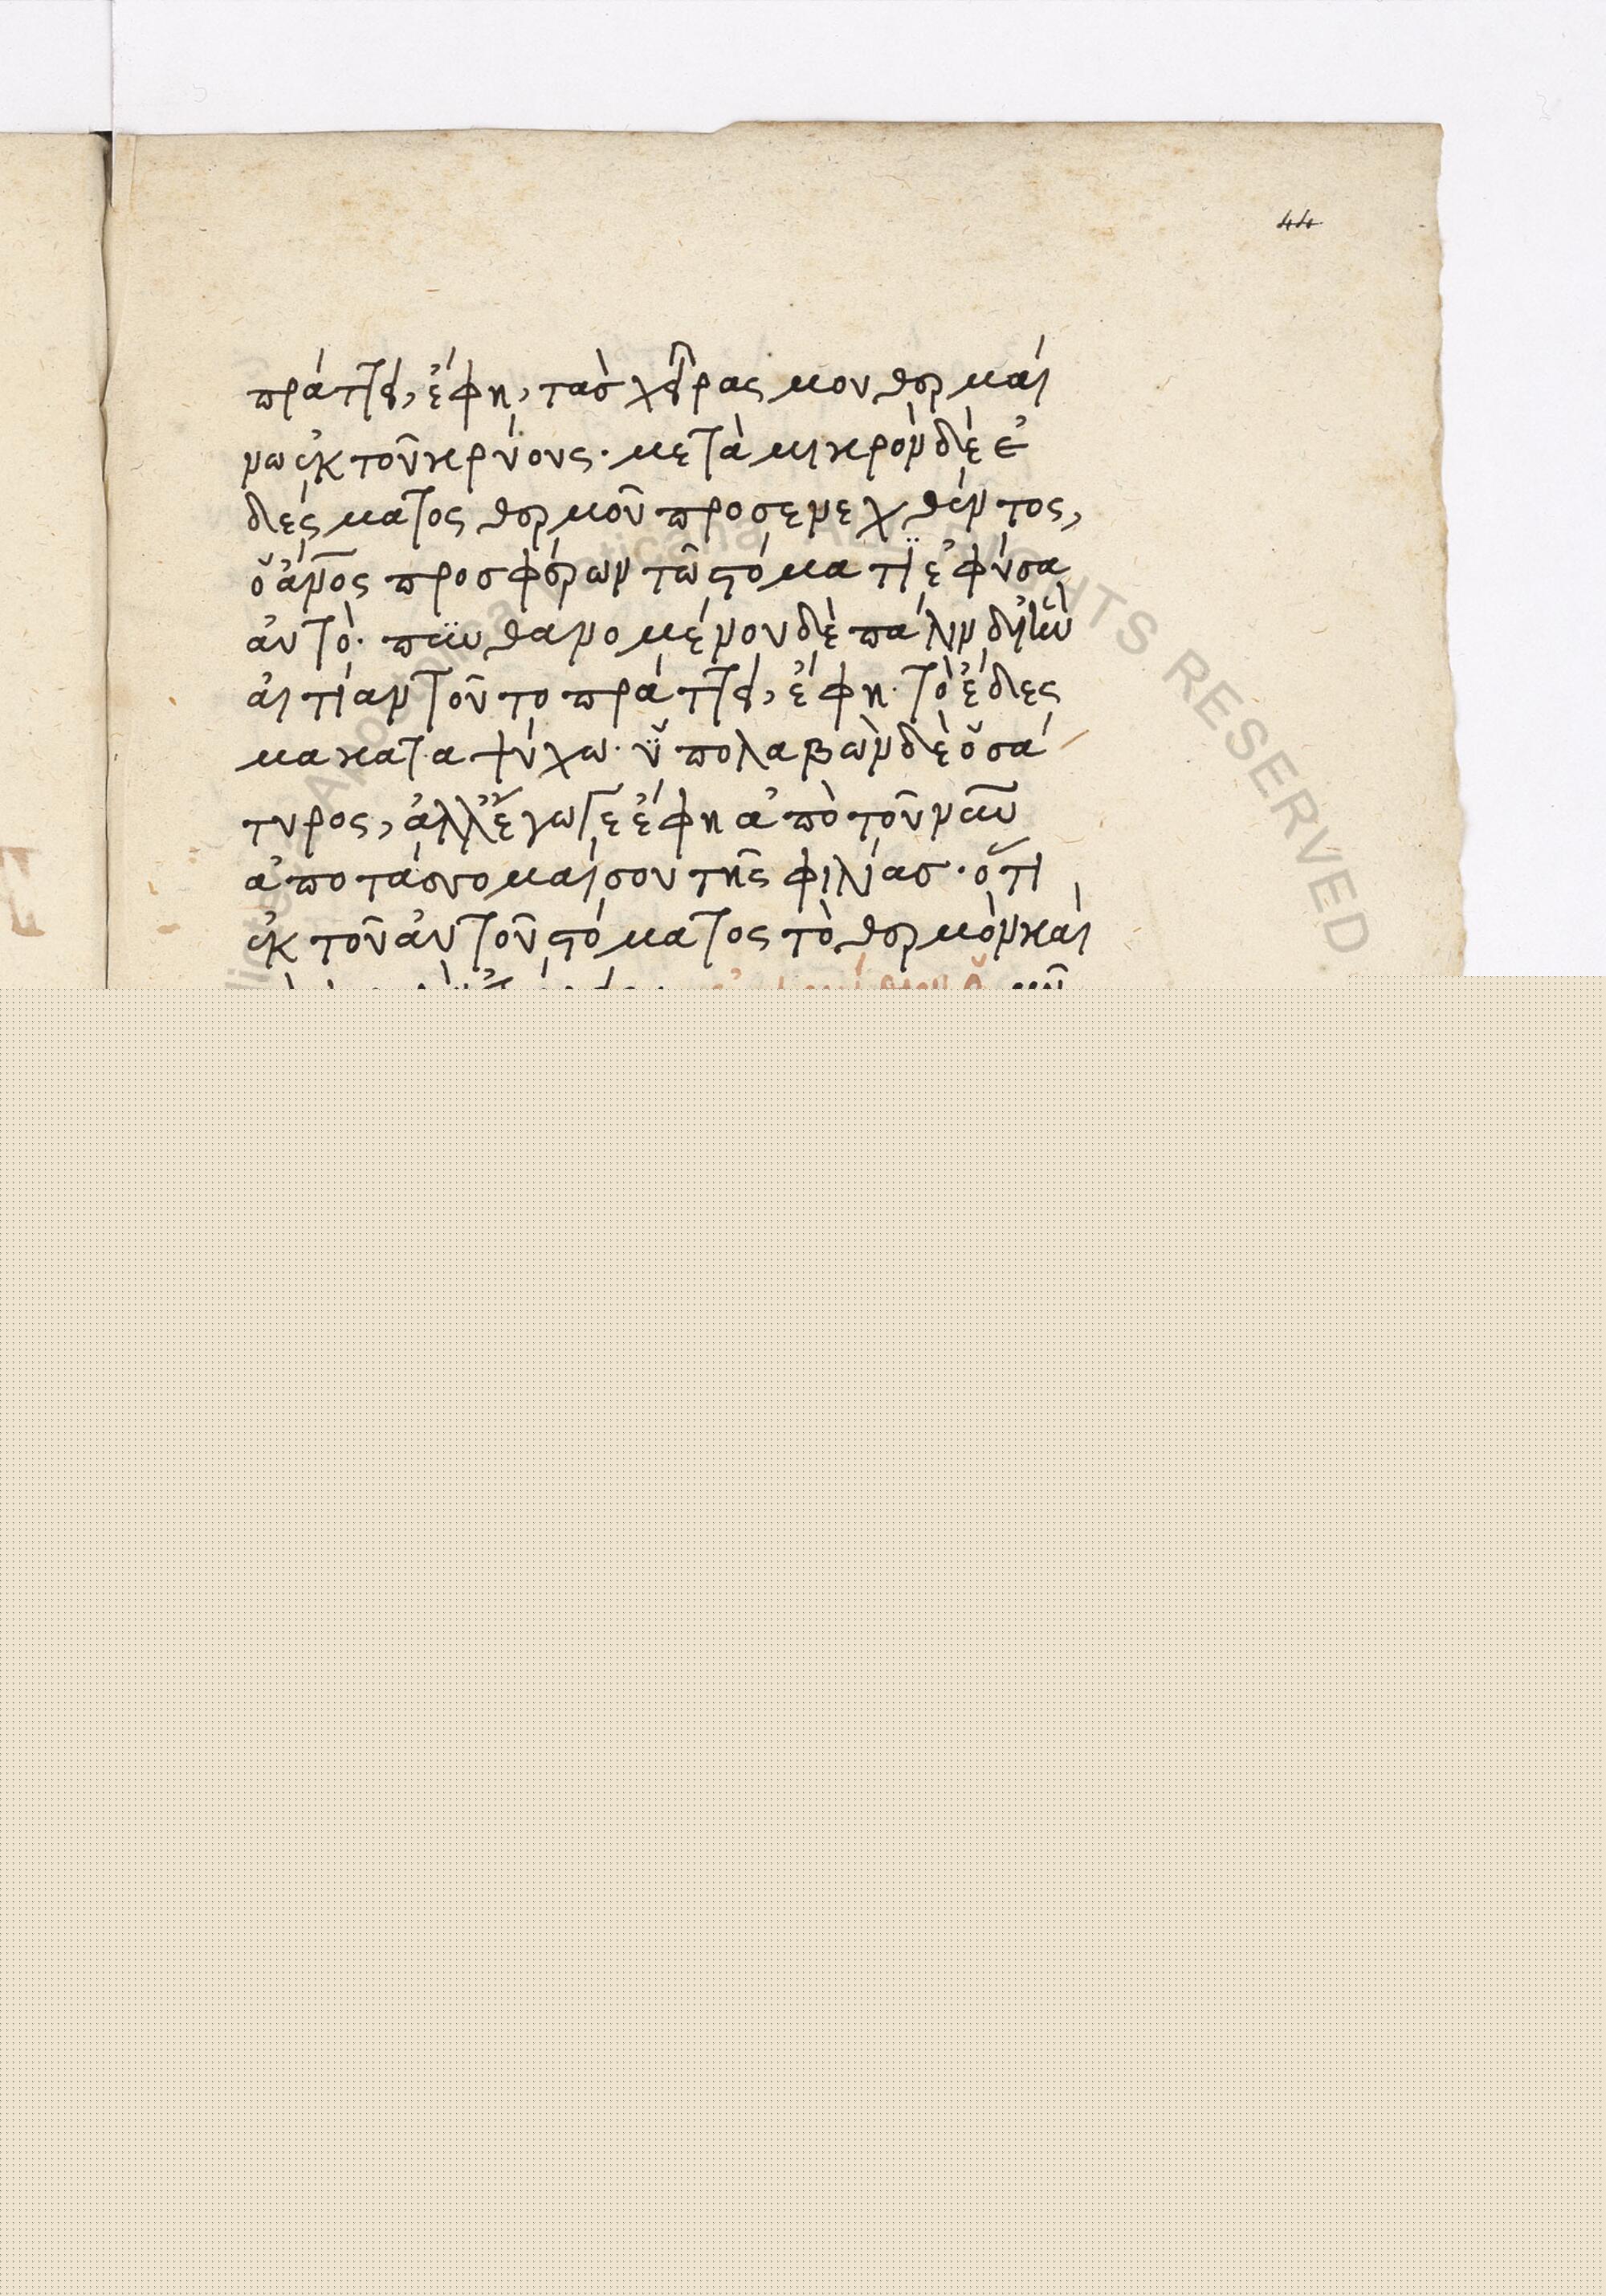 44
πράττει, ἔφη, τὰσ χεῖρας μου θερμαί
νω ἐκ τοῦ κρύους· μετὰ μικρὸν δὲ ἐ
δέσματος θερμοῦ προσενεχθέντος,
ὁ ἄνος προσφέρων τῶ στόματι ἐφύσα
αὐτὸ· πϋθανομένου δὲ πάλιν δι' ἣν
αἰτίαν τοῦτο πράττει, ἔφη· τὸ ἔδεσ
μα καταψύχω· ὑπολαβὼν δὲ ὁ σά
τυρος, ἀλλ' ἔγωγε ἔφη ἀπὸ τοῦ νῦν
ἀποτάσσομαί σου τῆς φιλίασ· ὅτι
ἐκ τοῦ αὐτοῦ στόματος τὸ θερμὸν καὶ